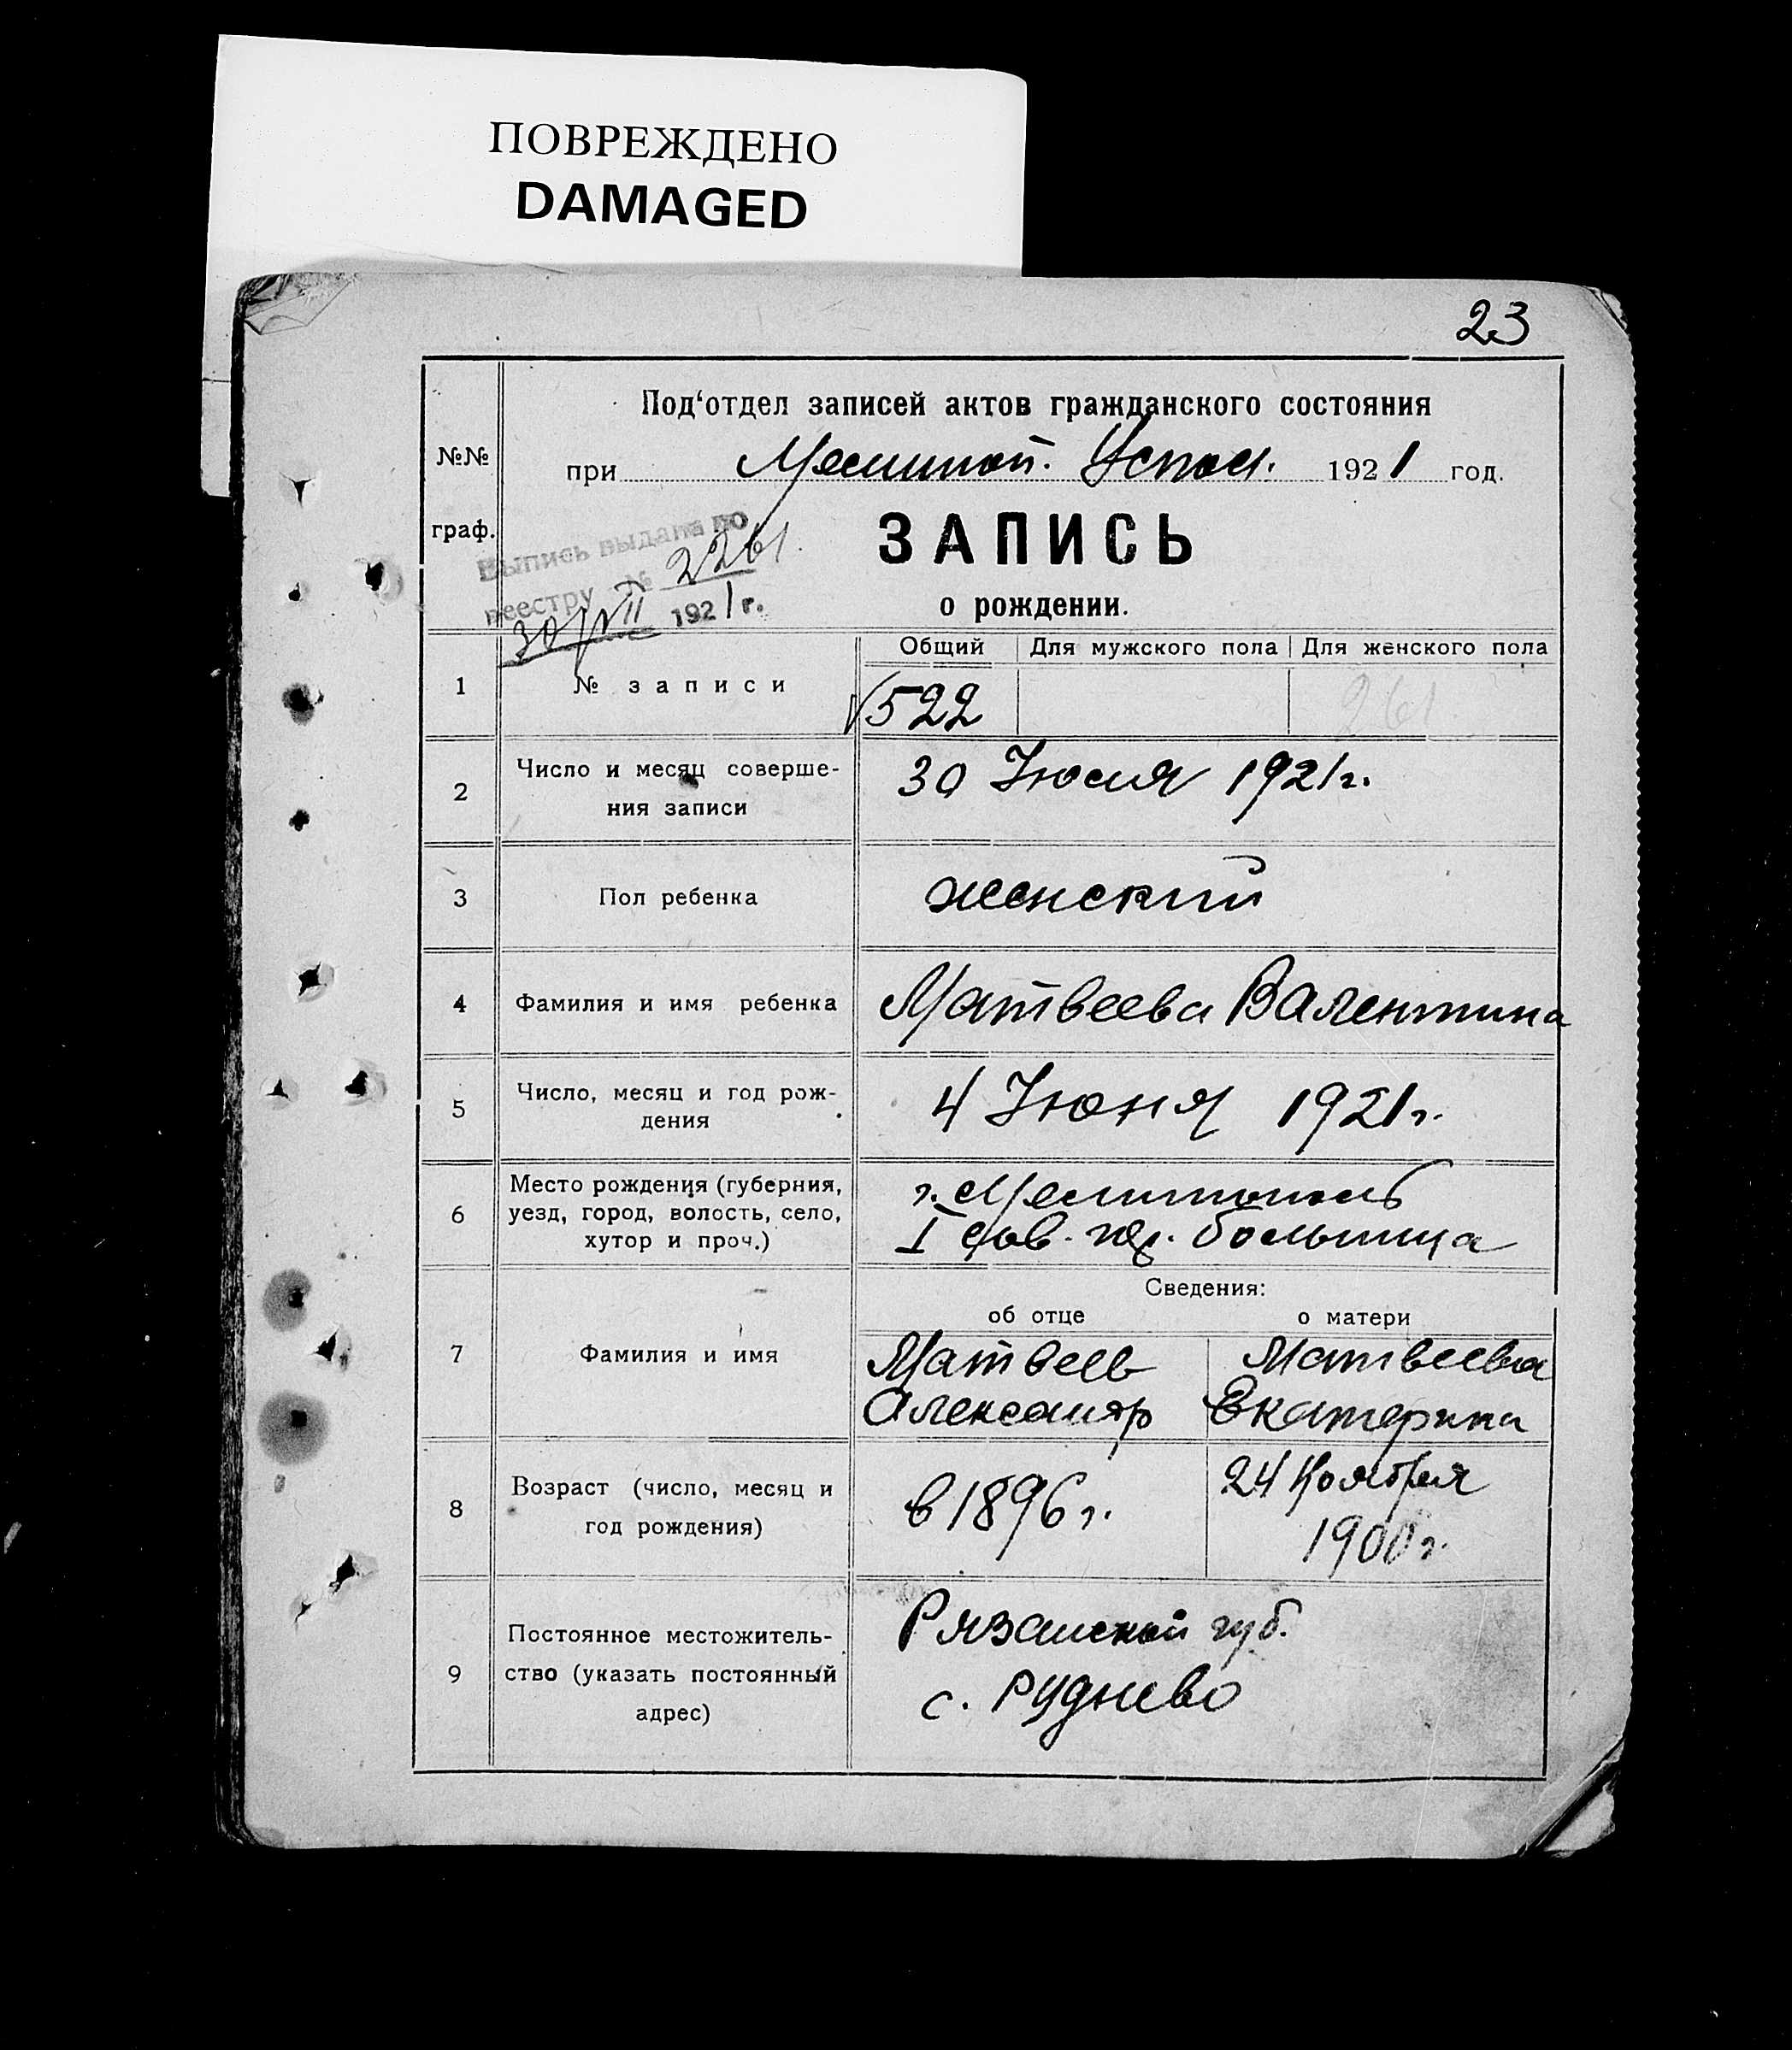 ПОВРЕЖДЕНО
DAMAGED
23
Под‘отдел записей актов гражданского состояния
№№
граф.
при Мелитоп. Уисполк. 1921 год.
Выпись выдана по
реестру № 2261
30/VII 1921 г.
ЗАПИСЬ
о рождении.
Общий Для мужского пола Для женского пола
1 № записи 522 261
2 Число и месяц соверше-
ния записи
30 Июля 1921 г.
3 Пол ребенка женский
4 Фамилия и имя ребенка Матвеева Валентина
5 Число, месяц и год рож-
дения
4 Июня 1921 г.
6 Место рождения (губерния,
уезд, город, волость, село,
хутор и проч.)
г. Мелитополь
I Сов. больница
Сведения:
об отце о матери
7 Фамилия и имя
Матвеев Матвеева
Александр Екатерина
8 Возраст (число, месяц и
год рождения)
в 1896 г. 24 Ноября
1900 г.
9 Постоянное местожитель-
ство (указать постоянный
адрес)
Рязанской губ.
с. Руднево